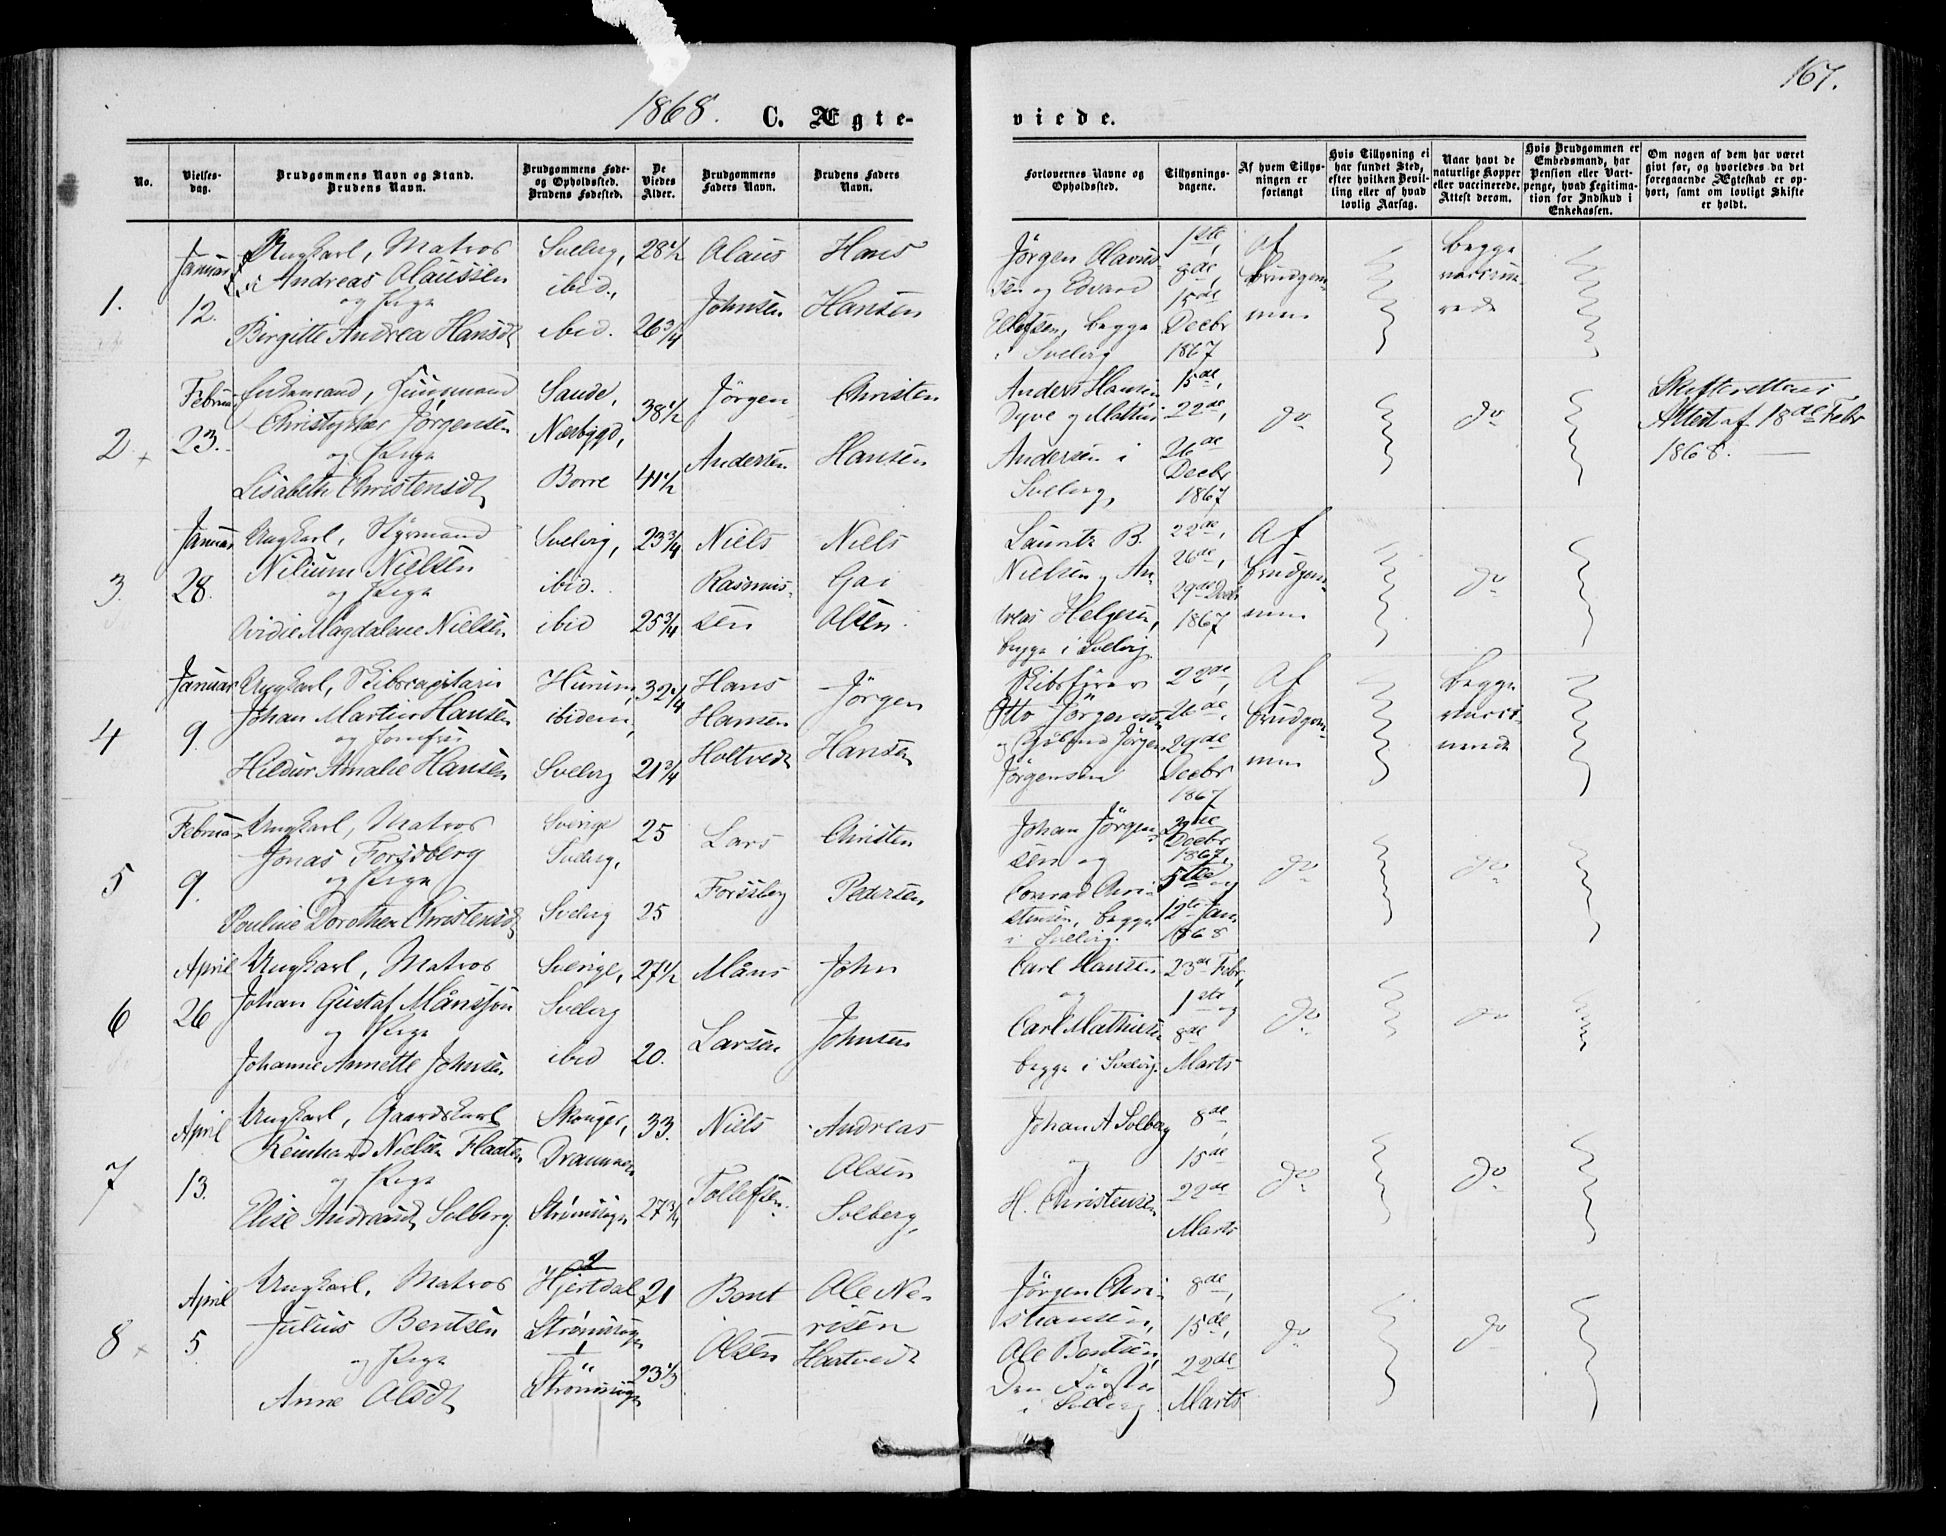 167.
1868. C. Ægte-
viede.
No.
Vielses-
dag.
Brudgommens Navn og Stand.
Brudens Navn.
Brudgommens Føde-
og Opholdssted.
Brudens Fødested.
De
Viedes
Alder.
Brudgommens
Faders Navn.
Brudens Faders
Navn.
Forlovernes Navne og
Opholdssted.
Tillysnings-
dagene.
Af hvem Tillys-
ningen er
forlangt
Hvis Tillysning ei
har fundet Sted,
efter hvilken Bevil-
ling eller af hvad
lovlig Aarsag.
Naar havt de
naturlige Kopper
eller vaccinerede.
Attest derom.
Hvis Brudgommen er
Embedsmand, har
Pension eller Vart-
penge, hvad Legitima-
tion for Indskud i
Enkekassen.
Om nogen af dem har været
givt før, og hvorledes da det
foregaaende Ægteskab er op-
hørt, samt om lovligt Skifte
er holdt.
1.
Januar
12.
Ungkarl, Matros
Andreas Olaussen
og Pige
Birgitte Andrea Hansdt
Svelvig,
ibid.,
ibid.
28 1/2
26 3/4
Olaus
Johnsen
Hans
Hansen
Jörgen Olavus-
sen og Edvard
Ellefsen, begge
i Svelvig
1ste,
8de,
15de
Decbr
1867
Af
Brudgom-
men
Begge
vaccine-
rede
2
Februar
23.
Enkemand,
Christopher Jørgensen
og Pige
Lisabeth Christensdt
Sande,
Nesbygd,
Borre
38 1/2
41 1/2
Jörgen
Andersen
Christen
Hansen
Anders Hansen
Dyve og Mathias
Andersen i
Svelvig,
15de,
22de,
26de
Decbr
1867
do
do
Skifterettens
Attest af 18de Febr
1868.
3.
Januar
28.
Ungkarl, Styrmand
Nilium Nielsen
og Pige
Ovidie Magdalene Nielsen
Svelvig,
ibid.
ibid
23 3/4
25 3/4
Niels
Rasmus-
sen
Niels
Gai
Olsen.
Lauritz B.
Nielsen og An-
dreas Helgesen,
begge i Svelvig
22de,
26de,
29de Decbr
1867
Af
Brudgom-
men
do
4
Januar
9.
Ungkarl, Skibscapitain
Johan Martin Hansen
og Jomfru
Hildur Amalie Hansen
Hurum,
ibidem,
Svelvig
32 1/4
21 3/4
Hans
Hansen
Holtvedt
Jörgen
Hansen
Skibsförer
Otto Jörgensen
Jörgensen
22de,
26de,
29de
Decbr
1867
Af
Brudgom-
men
Begge
5
Februar
9.
Ungkarl, Matros
Jonas Forssberg
og Pige
Pouline Dorothea Christensdt
Sverige
Svelvig,
Svelvig
25
25
Lars
Forssberg
Christen
Pedersen
Johan Jörgen-
sen og
Conrad Chri-
stensen, begge
i Svelvig.
29de
Decbr
1867,
5te og
12te Jan.
1868
do
do
6
April
26
Ungkarl, Matros
Johan Gustaf Månsson
og Pige
Johanne Annette Johnsen
Sverige,
Svelvig
ibid
27 1/2
20.
Måns
Larsen
John
Johnsen
Carl Hansen
og
Carl Mathisen
begge i Svelvig.
23de Febr,
1ste og
8de
Marts
do
do
7
April
13.
Ungkarl, Gaardskarl
Reinhard Nielsen Flaaten
og Pige
Elise Andreasdt Solberg.
Skouger,
Drammen
Strömsgn
33.
27 3/4
Niels
Tollefsen.
Andreas
Olsen
Solberg,
Johan A Solberg
og
H. Christensen
8de,
15de
22de
Marts
do
do
8
April
5
Ungkarl, Matros
Julius Bentsen
og Pige
Anne Olsdt
Hjertdal
Strömsogn
Strömsogn
21
23 1/3
Bent
Olsen
Ole Ne-
risen
Hartvedt
Jörgen Chri-
stiansen,
Ole Bentsen,
i Svelvig
8de,
15de,
22de
Marts
do
do